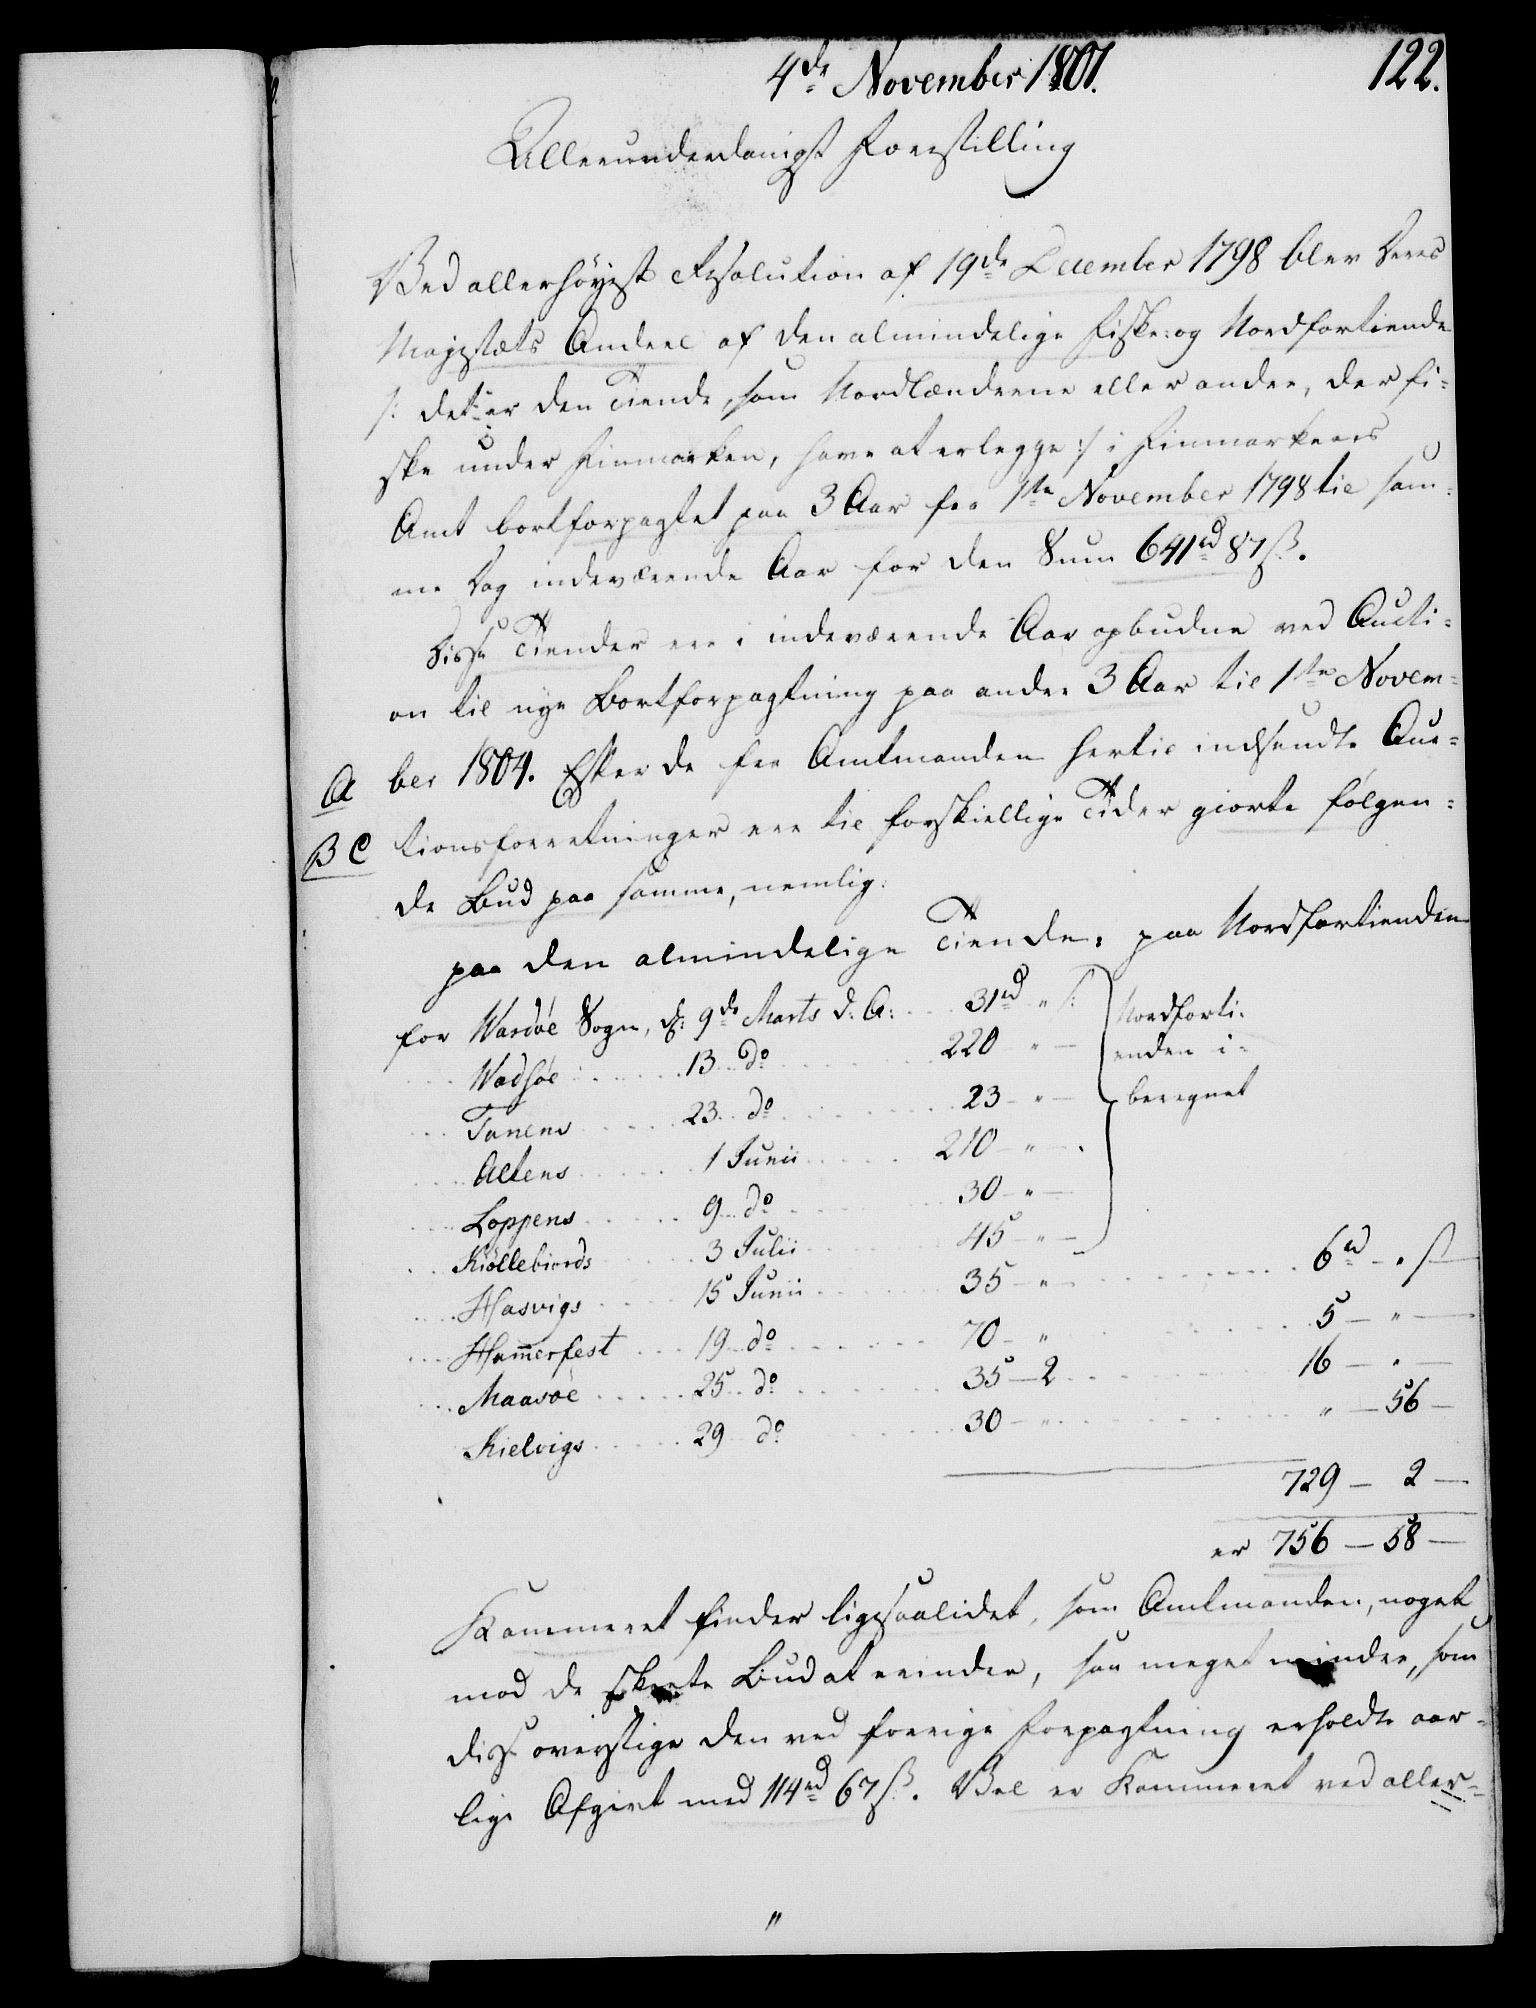 4de November 1801.
122.
Allerunderdanigst Forestilling
Ved allerhöyest Resolution af 19de December 1798 blev Deres
Majestæts Andeel af den almindelige Fiske- og Nordfartiende
/: det er den Tiende, som Nordlænderne eller andre, der fi-
ske under Finmarken, have at erlegge :/ i Finmarkens
Amt bortforpagtet paa 3 Aar fra 1ste November 1798 til sam-
me Dag indeværende Aar for den Sum 641 rd 87 ß.
Disse Tiender ere i indeværende Aar opbudne ved Aucti-
on til nye Bortforpagtning paa andre 3 Aar til 1ste Novem-
A ber 1804. Efter de fra Amtmanden hertil indsendte Auc-
B C tionsforretninger ere til forskiellige Tider giorte følgen-
de Bud paa samme, nemlig:
paa den almindelige Tiende, paa Nordfartienden
for Wardöe Sogn, d: 9de Marts d: A: 31 rd " ß: Nordfarti-
Wadsöe 13 do 220 - " - enden i-
Tanens 23 do 23 - " - beregnet
Altens 1 Junii 210 - " -
Loppens 9 do 30 - " -
Kiöllefiords 3 Julii 45 - " -
Hasvigs 15 Junii 35 - " 6 rd - " ß
Hamerfest 19 do 70 - " 5 - " -
Maasöe 25 do 35 - 2 16 - " -
Kielvigs 29 do 30 - " " - 56 -
729 - 2 -
er 756 - 58 -
Kammeret finder ligesaalidet, som Amtmanden, noget
mod de skeete Bud at erindre, saa meget mindre, som
disse overstige den ved forrige Forpagtning erholdte aar-
lige Afgivt med 114 rd 67 ß. Vel er Kammeret ved aller-
"